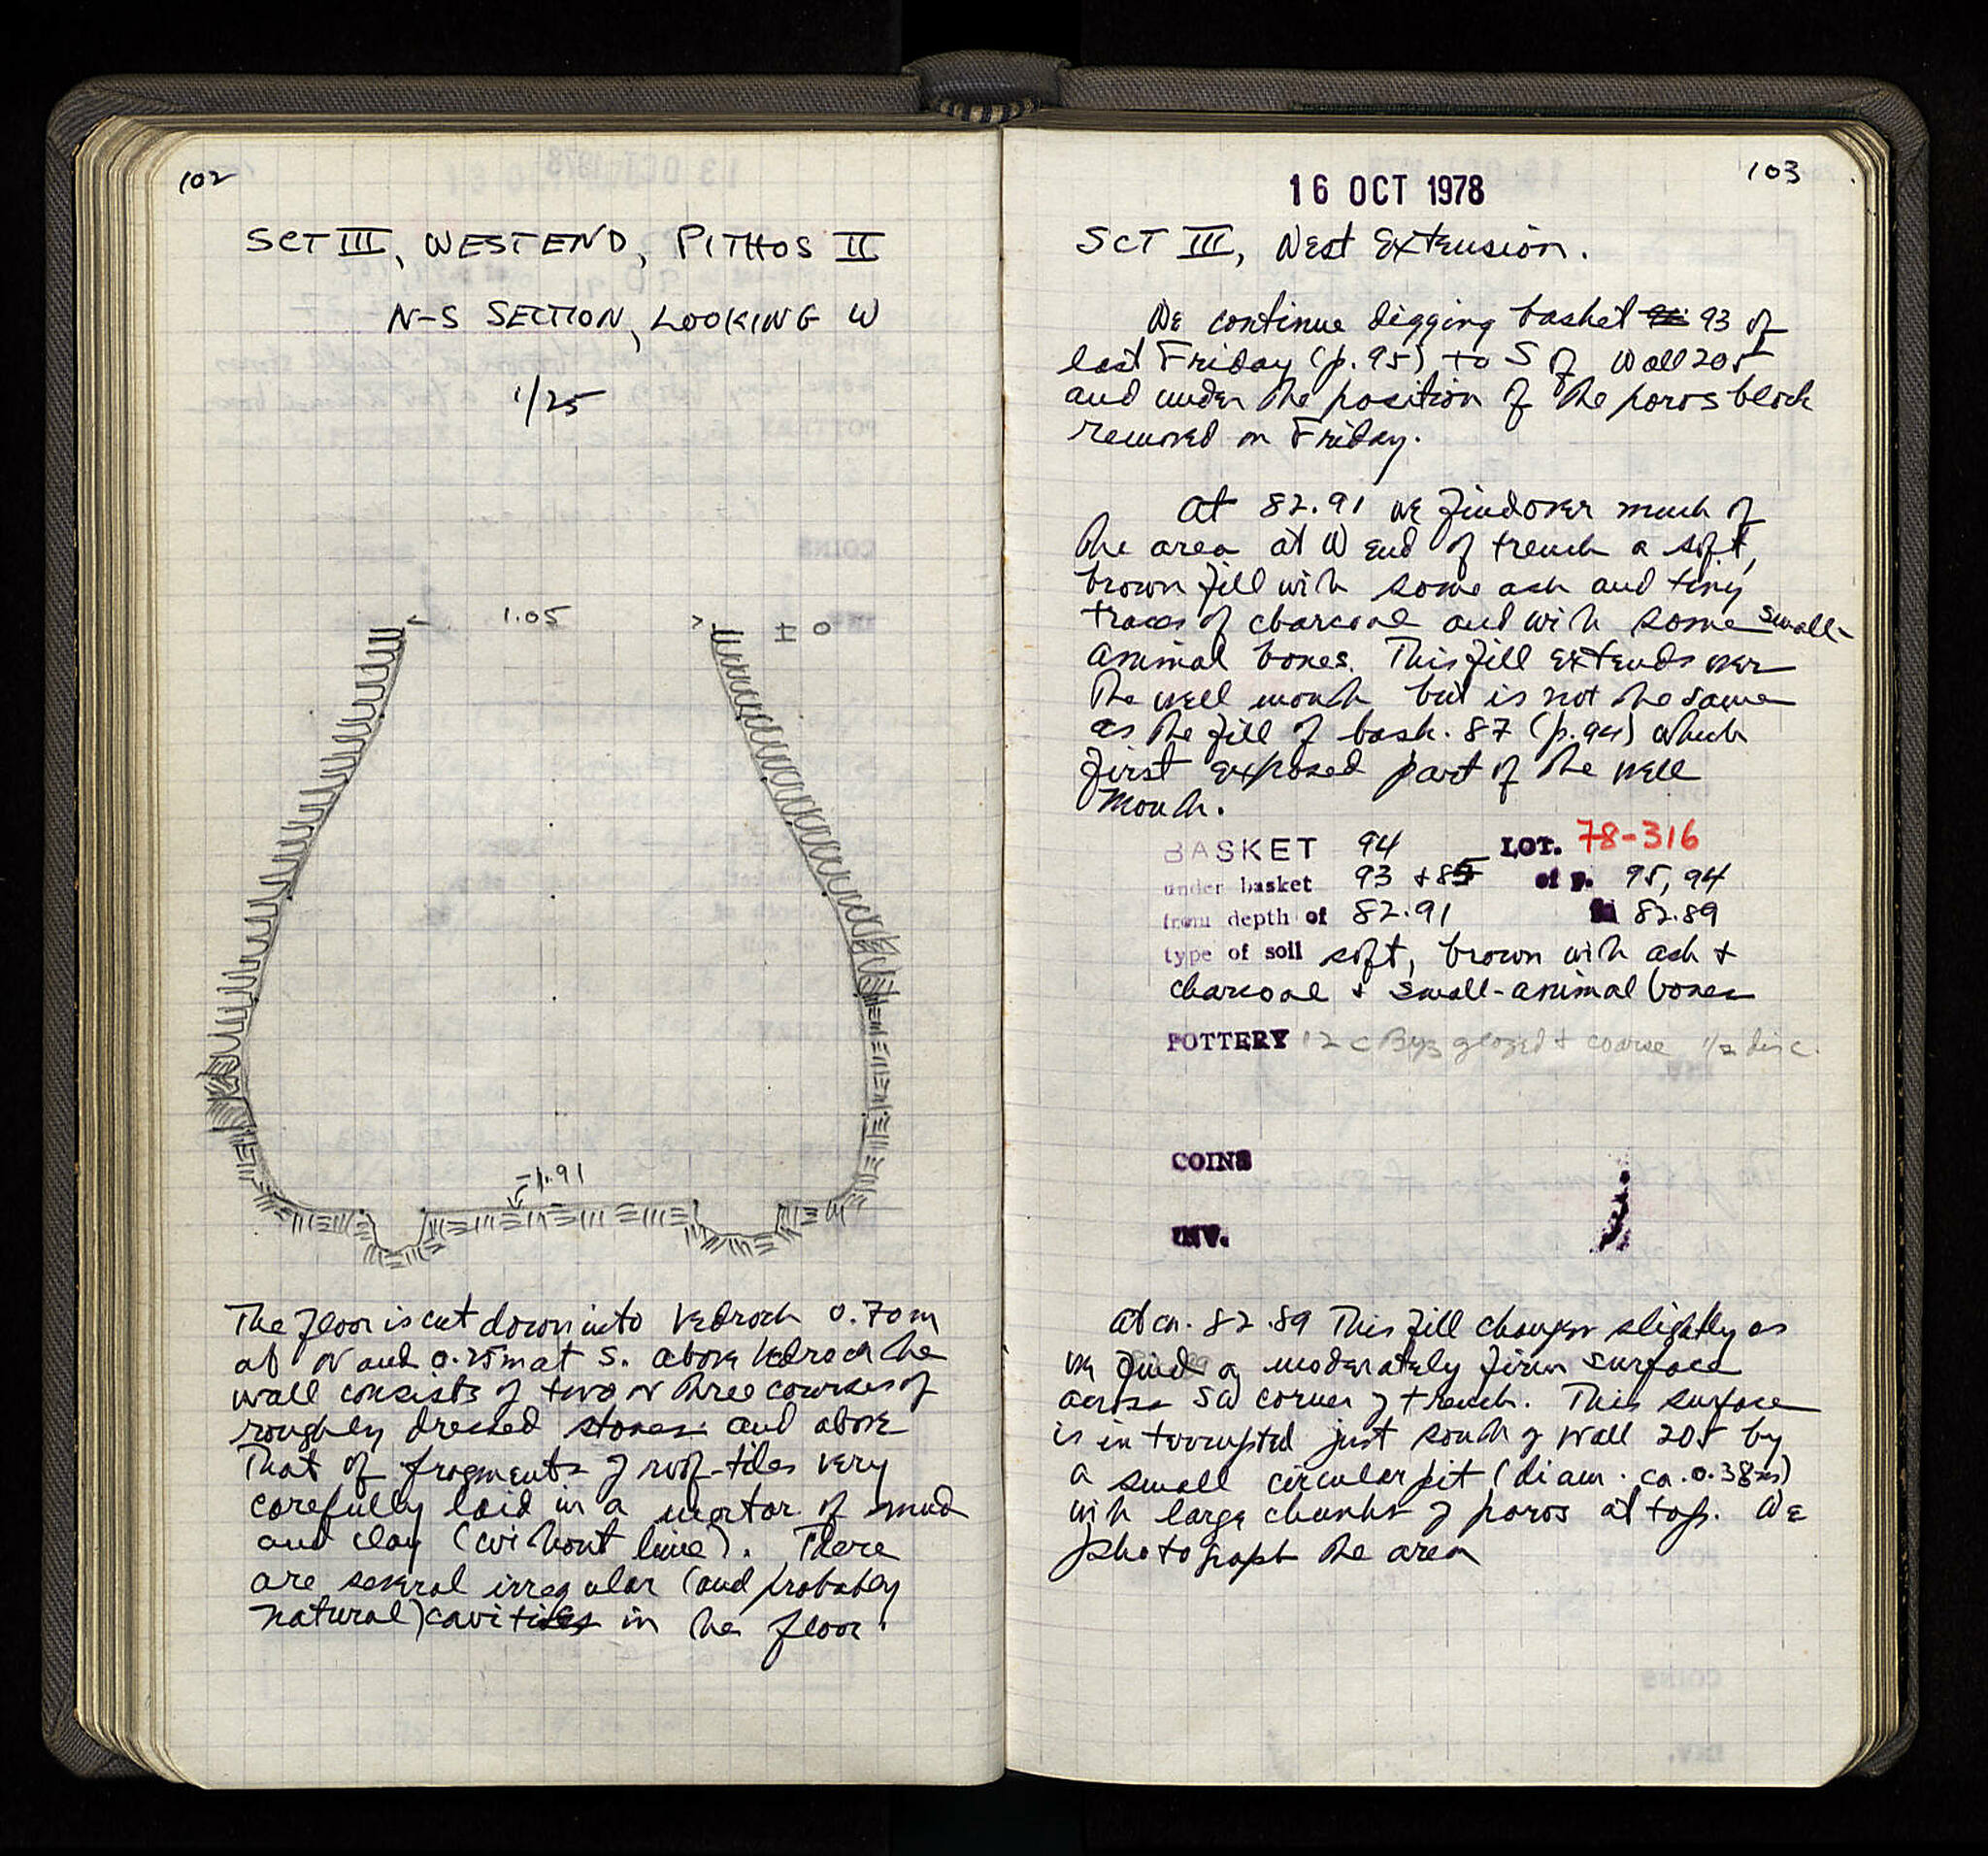 102
SCT III, WEST END, PITHOS II
N-S SECTION, LOOKING W
1/25
1.05
± 0
-1.91
The floor is cut down into bedrock 0.70m
at N and 0.25m at S. above bedrock the
wall consists of two or three courses of
roughly dressed stones and above
that of fragments of roof-tiles very
carefully laid in a mortar of mud
and clay (without lime). There
are several irregular (and probably
natural) cavities in the floor.
103
16 OCT 1978
SCT III, West Extension.
We continue digging basket 93 of
last Friday (p. 95) to S of Wall 205
and under the position of the poros block
removed on Friday.
At 82.91 we find over much of
the area at W end of trench a soft,
brown fill with some ash and tiny
traces of charcoal and with some small-
animal bones. This fill extends over
the well mouth but is not the same
as the fill of bask. 87 (p. 94) which
first exposed part of the well
mouth.
BASKET 94 LOT. 78-316
under basket 93 + 85 of p. 95, 94
from depth of 82.91 82.89
type of soil soft, brown with ash +
charcoal + small-animal bones
POTTERY 12 c Byz glazed + coarse 1/2 disc.
COINS
INV.
At ca. 82.89 this fill changes slightly as
we find a moderately firm surface
across SW corner of trench. This surface
is interrupted just south of Wall 205 by
a small circular pit (diam. ca. 0.38m)
with large chunks of poros at top. We
photograph the area